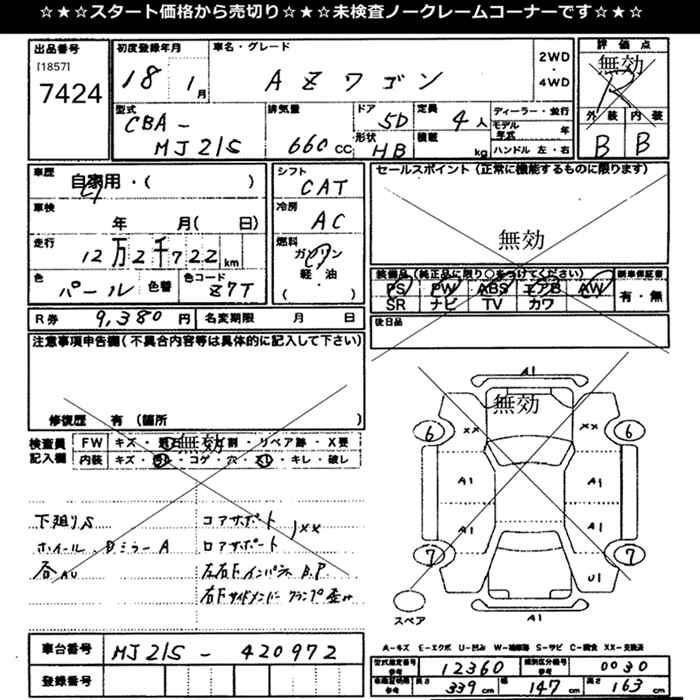 ☆★☆★スタート価格から売切り☆★☆★未検査ノークレームコーナーです☆★☆
出品番号
[1857]
7424
初度登録年月
18 1月
車名・グレード
AZワゴン
2WD
4WD
評価点
無効
R
外装 内装
B B
型式
CBA-
MJ21S
排気量
660cc
ドア
5D
形状
HB
定員
4人
積載
kg
ディーラー・並行
モデル年式 年
ハンドル 左・右
車歴
自家用・( )
車検
年 月( 日)
走行
12万2千722km
色
パール
色替
色コード
Z7T
シフト
CAT
冷房
AC
燃料
ガソリン
軽・油
( )
セールスポイント(正常に機能するものに限ります)
無効
装備品(純正品に限り○をつけてください)
PS PW ABS エアB AW
SR ナビ TV カワ
新車保証書
有・無
後日品
R券 9,380円 名変期限 月 日
注意事項申告欄(不具合内容等は具体的に記入して下さい)
修復歴 有(箇所 )
検査員記入欄
FW キズ・ 無効 割・リペア跡・X要
内装 キズ・ ・コゲ・穴・ ・キレ・破レ
下廻りS
ホイール、DミラーA
各AU
コアサポート
ロアサポート
XX
左右Fインパネ B.P
右Fサイドメンバー クランプ歪み
A1
無効
6 XX XX 6
A1 A1
A1 A1
7 U1 7
A1
スペア
A-キズ E-エクボ U-凹み W-補修跡 S-サビ C-腐食 XX-交換済
車台番号 MJ21S-420972
登録番号
型式指定番号 参考 12360
類別区分番号 参考 0030
車両明細寸 参考 長さ 339cm 幅 147cm 高さ 163cm